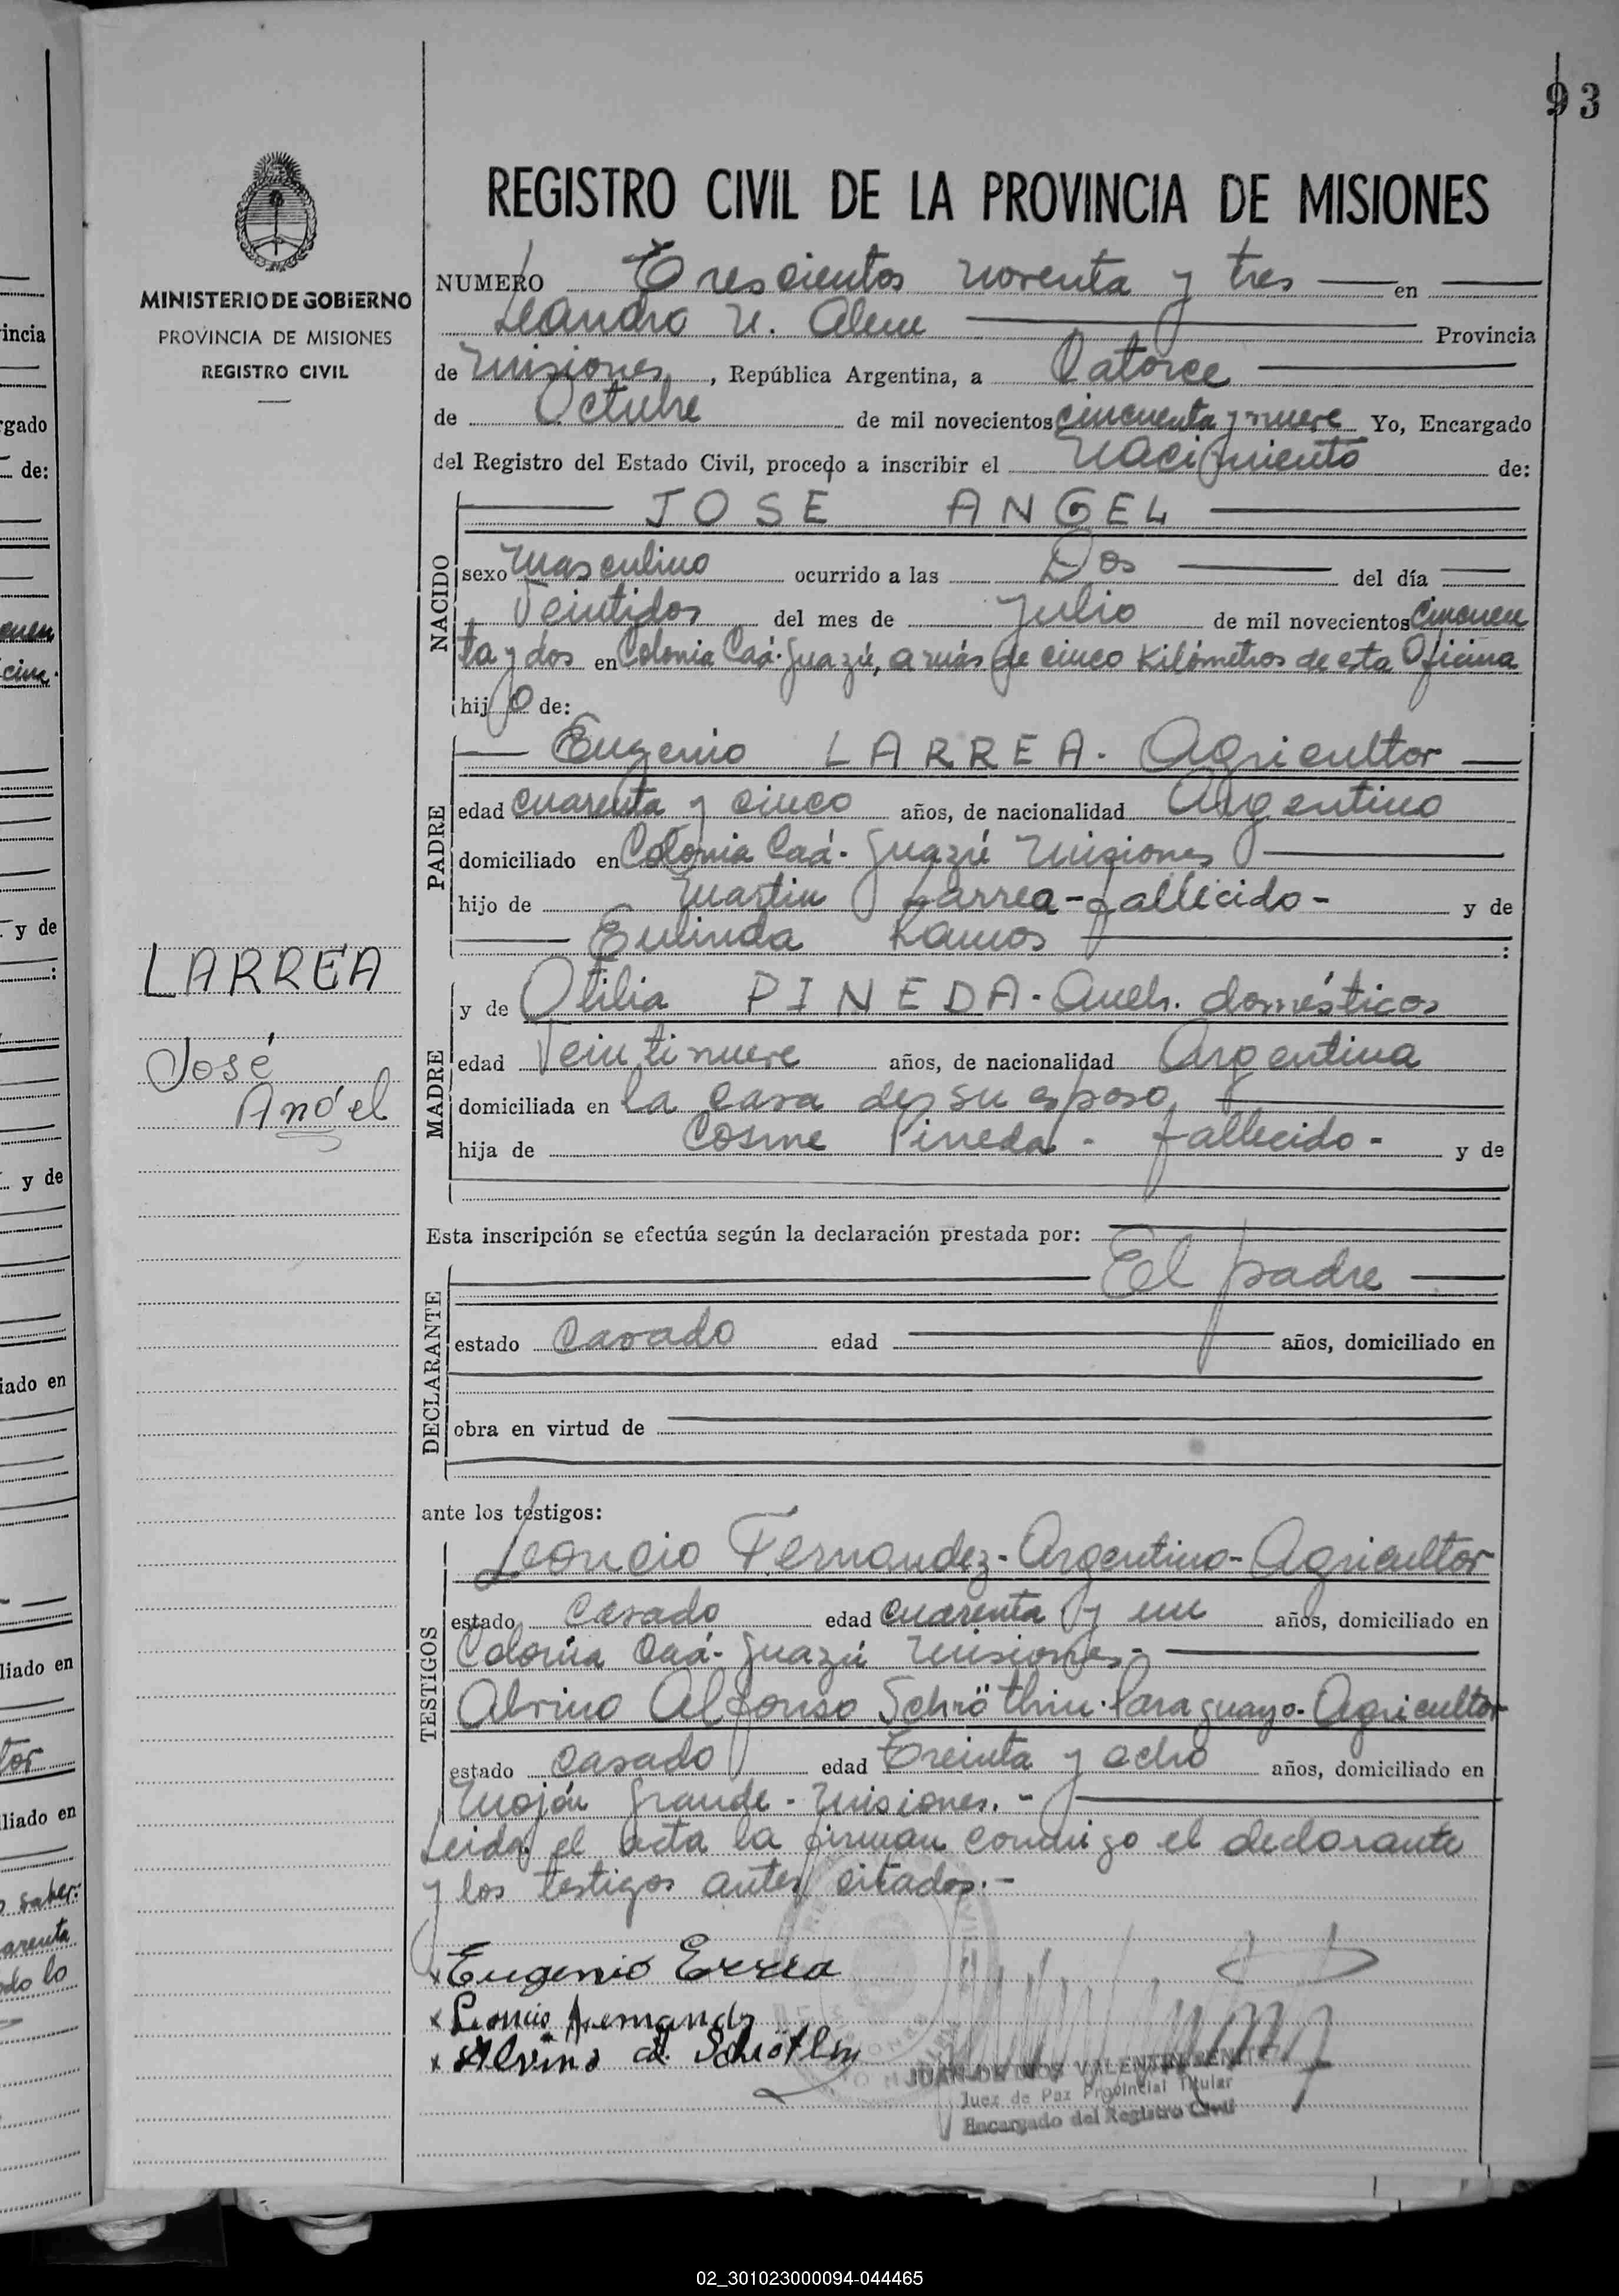 93
REGISTRO CIVIL DE LA PROVINCIA DE MISIONES
MINISTERIO DE GOBIERNO
PROVINCIA DE MISIONES
REGISTRO CIVIL
NUMERO Trescientos noventa y tres en
Leandro N. Alem Provincia
de Misiones, República Argentina, a Catorce
de Octubre de mil novecientos cincuenta y nueve Yo, Encargado
del Registro del Estado Civil, procedo a inscribir el Nacimiento de:
NACIDO
JOSE ANGEL
sexo Masculino ocurrido a las Dos del día
Veintidos del mes de Julio de mil novecientos Cincuen
ta y dos en Colonia Caá-Guazú, a más de cinco Kilómetros de esta Oficina
hijo de:
PADRE
Eugenio LARREA. Agricultor
edad cuarenta y cinco años, de nacionalidad Argentino
domiciliado en Colonia Caá-Guazú Misiones
hijo de Martin Larrea-fallecido- y de
Ramos :
LARREA
José
Angel
MADRE
y de Otilia PINEDA. Queh. domésticos
edad Veintinueve años, de nacionalidad Argentina
domiciliada en la casa de su esposo,
hija de Cosme Pineda - fallecido - y de
Esta inscripción se efectúa según la declaración prestada por:
DECLARANTE
El padre
estado Casado edad años, domiciliado en
obra en virtud de
ante los testigos:
TESTIGOS
Leoncio Fernandez-Argentino-Agricultor
estado Casado edad cuarenta y un años, domiciliado en
Colonia Caá-Guazú Misiones.-
Alvino Alfonso Schröthin. Paraguayo. Agricultor
estado casado edad Treinta y ocho años, domiciliado en
Mojón Grande - Misiones.-
Leida el acta la firman conmigo el declarante
y los testigos antes citados.-
x Eugenio Errea
x
x Alvino A.
JUAN DE DIOS VALENTIN
Juez de Paz Provincial Titular
Encargado del Registro Civil
incia
rgado
de:
y de
:
y de
iado en
liado en
tor
liado en
saber:
arenta
do lo
02_301023000094-044465